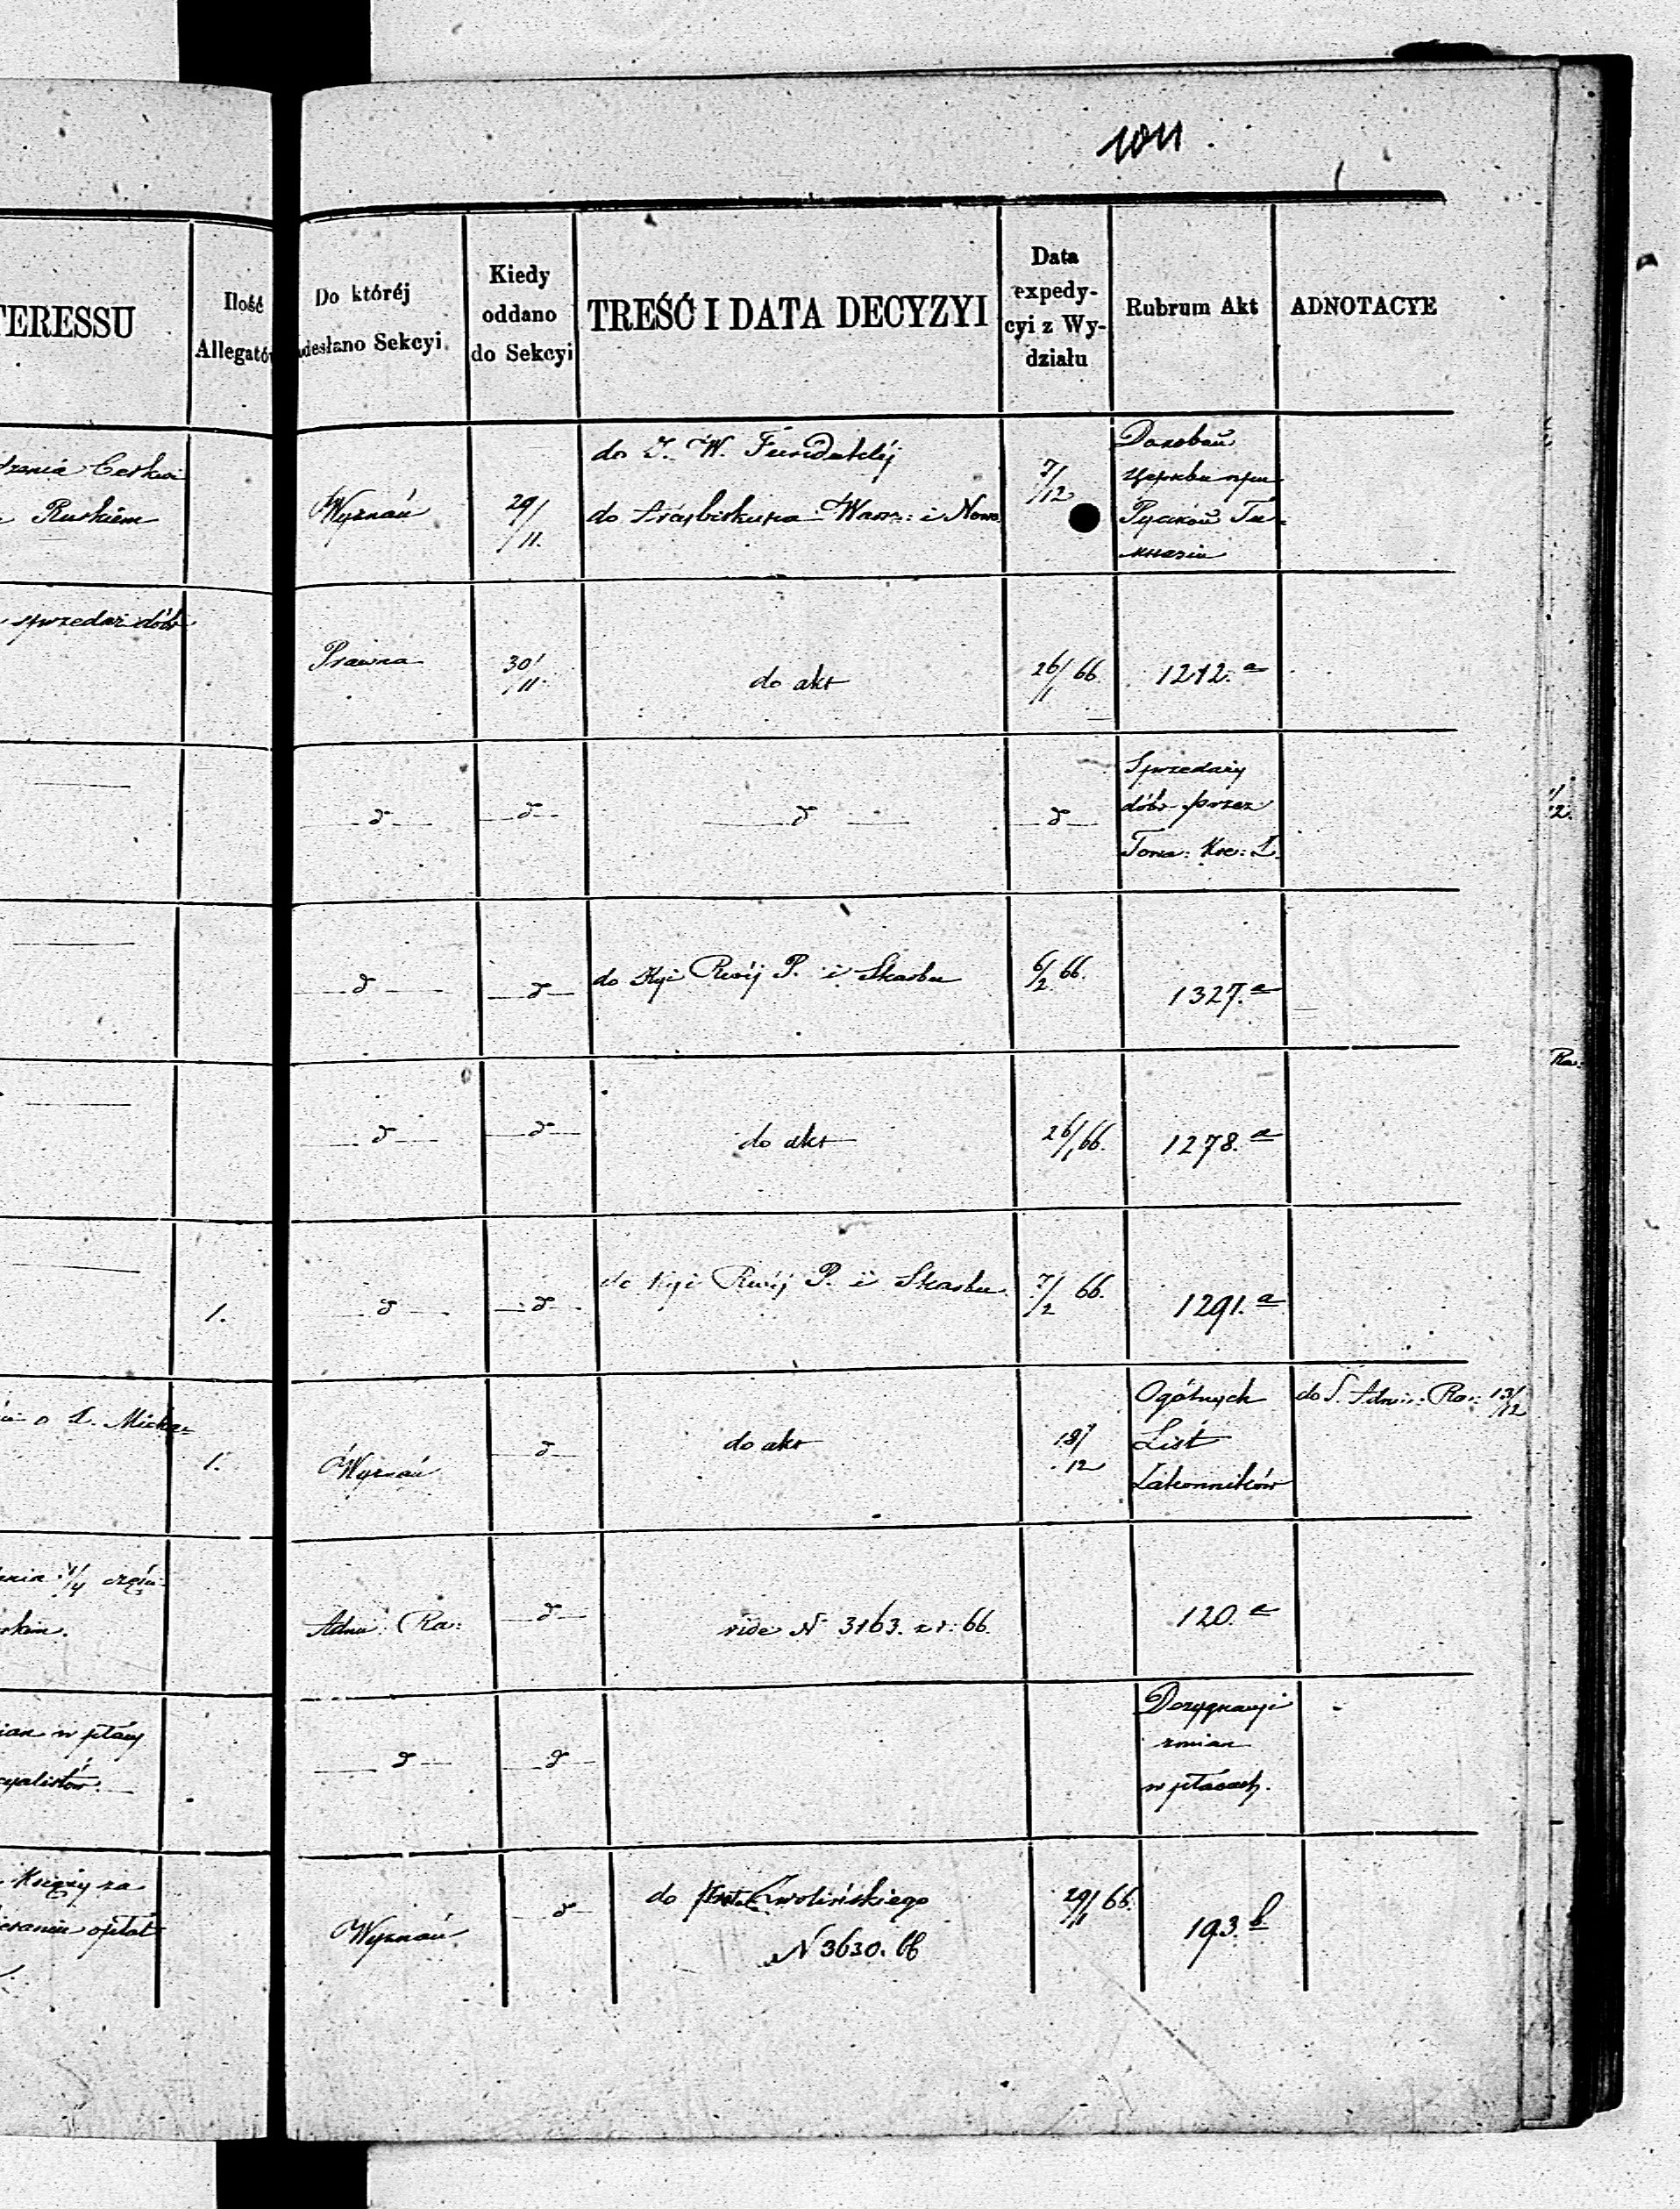 1011.
TERESSU
Ilość
Allegató
Do któréj
odesłano Sekcyi.
Kiedy
oddano
do Sekcyi
TREŚĆ I DATA DECYZYI
Data
expedy-
cyi z Wy-
działu
Rubrum Akt
ADNOTACYE
Cerkwi
Ruskiem
Wyznań
29/11.
do J. W.
do Arcybiskupa Warsz: i Nowo
7/12
Домовой
церкви при
Русской Ги-
мназіи
sprzedaż dóbr
Prawna
30/11.
do akt
26/1 66.
1212.a
d
d
d
d
Sprzedaży
dóbr przez
Tow: Kre: Z.
d
d
do Kyi Rwéj P. i Skarbu
6/2 66.
1327.a
d
d
do akt
26/1 66.
1278.a
1.
d
d
do Kyi Rwéj P. i Skarbu
7/2 66.
1291.a
o X. Micha=
1.
Wyznań
d
do akt
18/12
Ogólnych
List
Zakonników
do S. Adm: Ra: 13/12
1/4 części
Adm: Ra:
d
vide N 3163. z r: 66.
120.a
w płacy
d
d
Dezygnacyi
zmian
w płacach.
Księży za
opłat
Wyznań
d
do Zwolińskiego
N 3630. 66
29/1 66.
193.b
Ra: